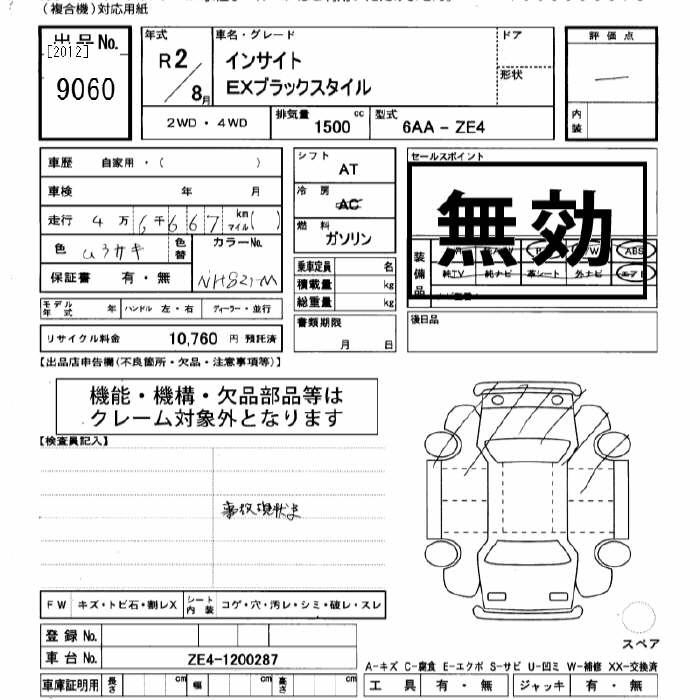 (複合機)対応用紙
出品No.
[2012]
9060
年式
R2/8月
車名・グレード
インサイト
EXブラックスタイル
ドア
形状
評価点
内装
2WD・4WD
排気量
1500 cc
型式
6AA - ZE4
車歴 自家用・( )
車検 年 月
走行 4万6千667 km マイル( )
色 ムラサキ
色替
カラーNo.
NH821M
保証書 有・無
モデル年式 年
ハンドル 左・右
ディーラー・並行
リサイクル料金 10,760 円 預託済
シフト
AT
冷房
AC
燃料
ガソリン
乗車定員 名
積載量 kg
総重量 kg
書類期限
月 日
セールスポイント
無効
装備品
ABS
純TV 純ナビ 革シート 外ナビ エアB
後日品
【出品店申告欄(不良箇所・欠品・注意事項等)】
機能・機構・欠品部品等は
クレーム対象外となります
【検査員記入】
事故現状車
FW キズ・トビ石・割レX
シート内装 コゲ・穴・汚レ・シミ・破レ・スレ
登録No.
車台No. ZE4-1200287
車庫証明用 長さ cm 幅 cm 高さ cm
スペア
A-キズ C-腐食 E-エクボ S-サビ U-凹ミ W-補修 XX-交換済
工具 有・無 ジャッキ 有・無